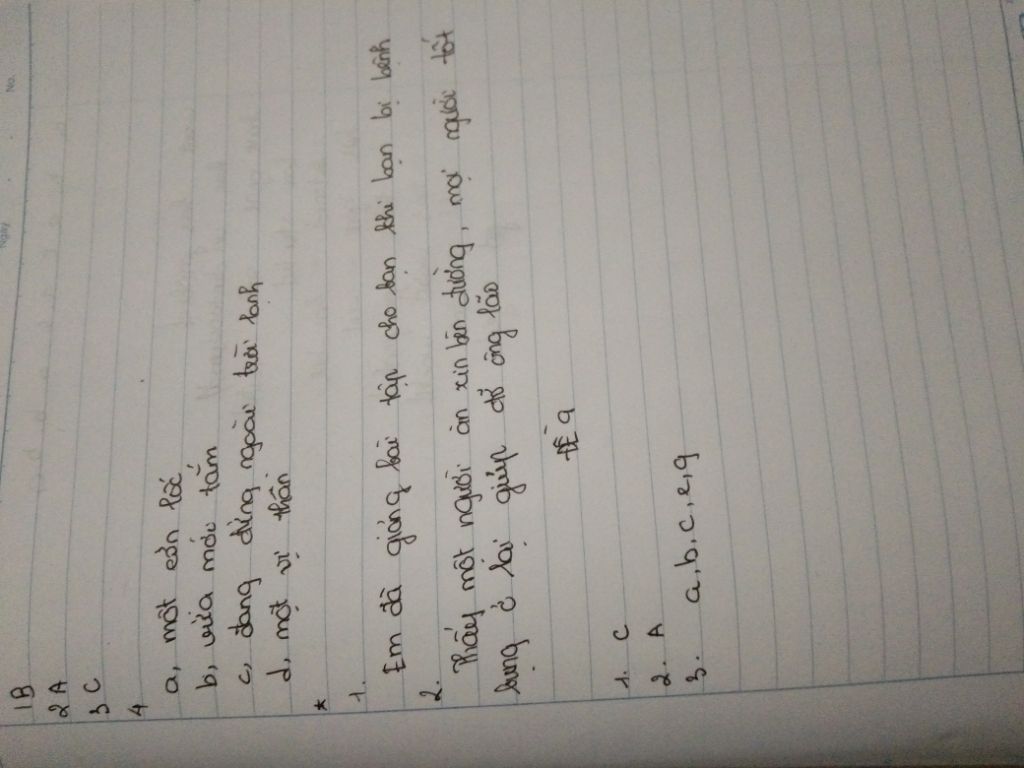 Ngày
No.
1B
2A
3 C
4
a, một cơn lốc
b, vừa mới tắm
c, đang đứng ngoài trời lạnh
d, một vị thần
*
1.
Em đã giảng bài tập cho bạn khi bạn bị bệnh
2.
Thấy một người ăn xin bên đường, mọi người tốt
bụng ở lại giúp đỡ ông lão
ĐỀ 9
1. C
2. A
3. a, b, c, e, g